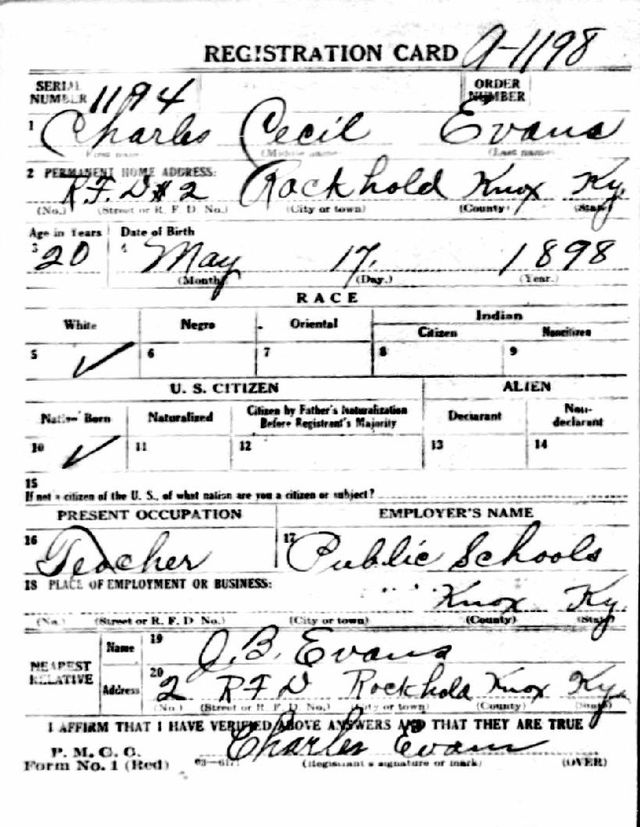 REGISTRATION CARD A-1198
SERIAL NUMBER 1194 ORDER NUMBER
1 Charles Cecil Evans
(First name) (Middle name) (Last name)
2 PERMANENT HOME ADDRESS:
R.F.D # 2 Rockhold Knox Ky.
(No.) (Street or R. F. D. No.) (City or town) (County) (State)
Age in Years Date of Birth
3 20 4 May 17, 1898
(Month) (Day.) (Year.)
RACE
White Negro Oriental Indian
Citizen Noncitizen
5 ✓ 6 7 8 9
U. S. CITIZEN ALIEN
Native Born Naturalized Citizen by Father's Naturalization Before Registrant's Majority Declarant Non-declarant
10 ✓ 11 12 13 14
15
If not a citizen of the U. S., of what nation are you a citizen or subject?
PRESENT OCCUPATION EMPLOYER'S NAME
16 Teacher 17 Public Schools
18 PLACE OF EMPLOYMENT OR BUSINESS:
" " Knox Ky.
(No.) (Street or R. F. D. No.) (City or town) (County) (State)
NEAREST RELATIVE
Name 19 J. B. Evans
Address 20 2 R F D Rockhold Knox Ky
(No.) (Street or R. F. D. No.) (City or town) (County) (State)
I AFFIRM THAT I HAVE VERIFIED ABOVE ANSWERS AND THAT THEY ARE TRUE
P. M. G. O.
Form No. 1 (Red) Charles Evans
(Registrant's signature or mark) (OVER)